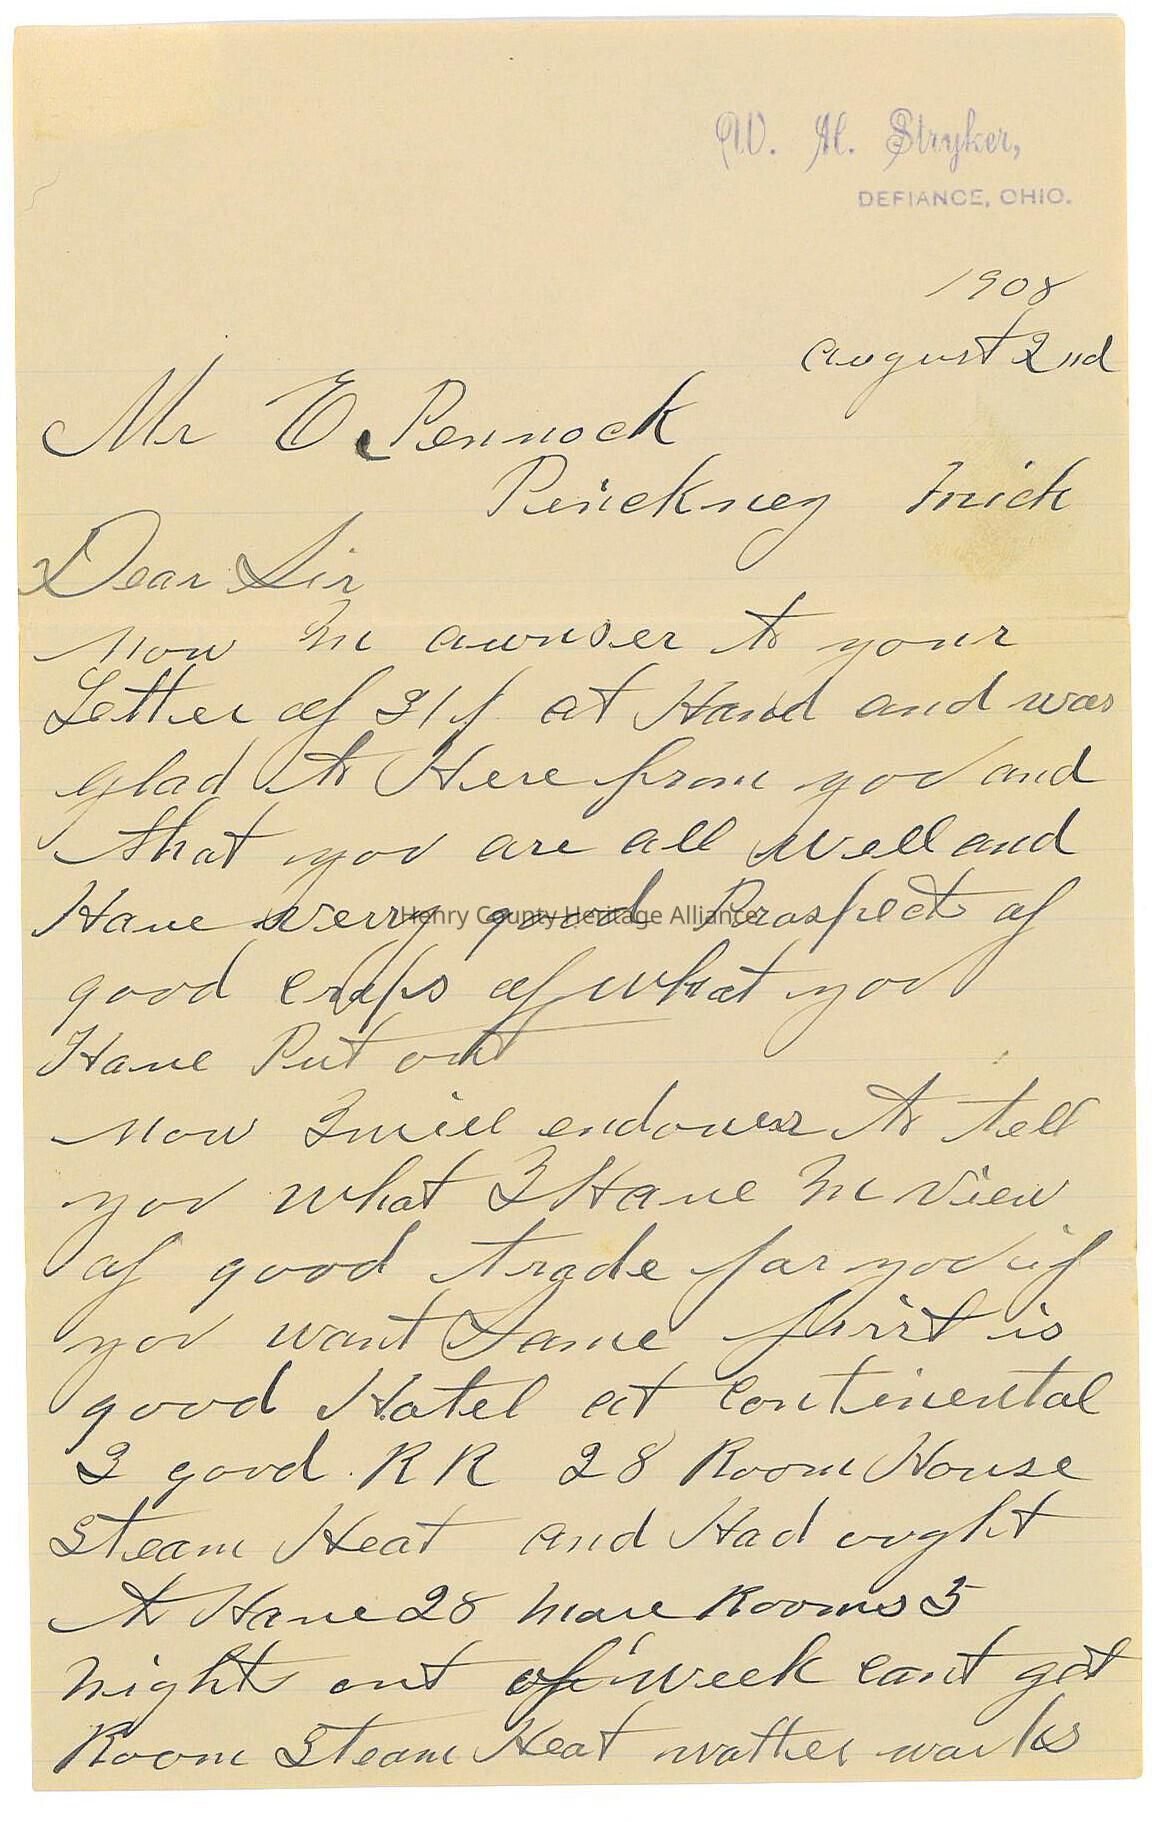 W. H. Stryker,
DEFIANCE, OHIO.
1908
august 2nd
Mr E. Pennock
Pinckney Mich
Dear Sir
now In awnser to your
Letter of 31 at Hand and was
glad to Here from yov and
that yov are all well and
Have verry good Prospects of
good crops of what yov
Have Put out
now I will endover to tell
yov what I Have In View
of good trade for yov if
yov want Same first is
good Hotel at Continental
3 good RR 28 Room House
Steam Heat and Had ovght
to Have 28 more Rooms 5
nights out of week cant get
Room Steam Heat watter works
Henry County Heritage Alliance